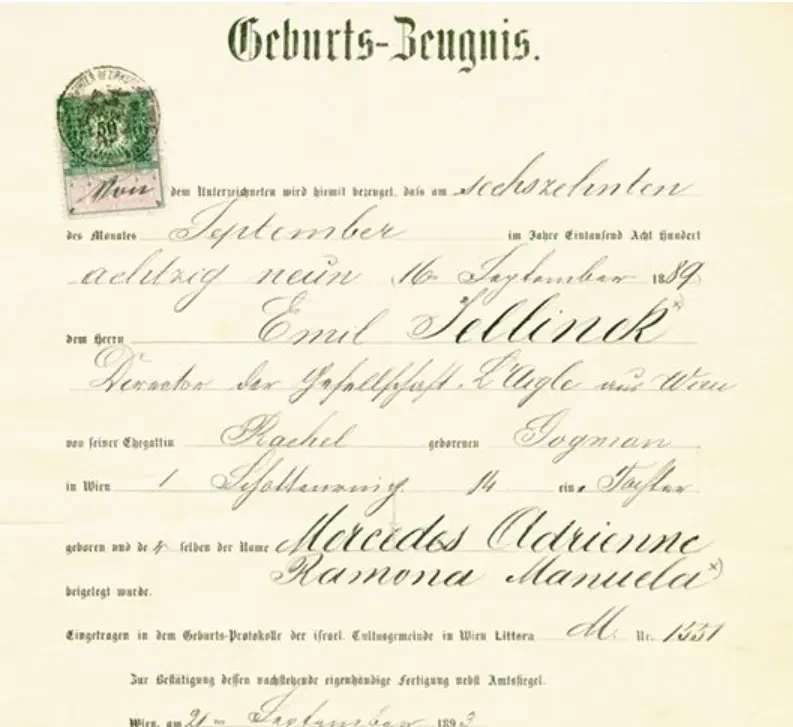 Geburts-Zeugnis.
50
Von dem Unterzeichneten wird hiemit bezeuget, dass am sechszehnten
des Monates September im Jahre Eintausend Acht Hundert
achtzig neun 16 September 1889
dem Herrn Emil Jellinek x)
Director der Gesellschaft L'Aigle aus Wien
von seiner Ehegattin Rachel geborenen Gogman
in Wien 1 Schottenring 14 eine Tochter
geboren und der selben der Name Mercedes Adrienne
Ramona Manuela x)
beigelegt wurde.
Eingetragen in dem Geburts-Protokolle der israel. Cultusgemeinde in Wien Littera M. Nr. 1551
Zur Bestätigung dessen nachstehende eigenhändige Fertigung nebst Amtssiegel.
Wien, am September 1893